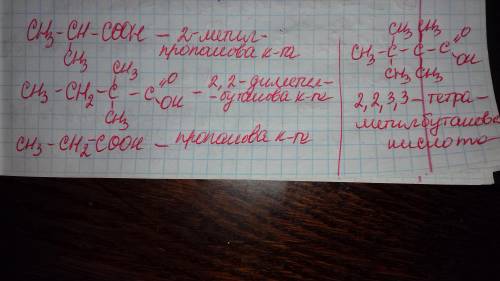 CH₃-CH-COOH – 2-метил-
CH₃ пропанова к-та
CH₃
CH₃-CH₂-C-C O – 2,2-диметил-
OH -бутанова к-та
CH₃
CH₃-CH₂-COOH – пропанова к-та
CH₃ CH₃
CH₃-C-C-C O
OH
CH₃ CH₃
2,2,3,3-тетра-
метилбутанова
кислота